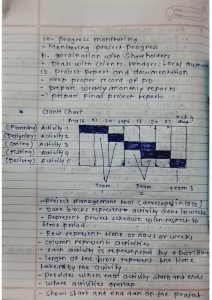 10. Progress monitoring
- Monitoring project progress
11. Coordination with Shareholders
- Deals with clients, vendors, local
12. Project Report and documentation
- Keep proper record of
- Prepare weekly/monthly reports
- prepare final project reports
Gantt Chart
(Planning) Activity 1
(Designing) Activity 2
(Coding) Activity 3
(Testing) Activity 4
(Delivery) Activity 5
Team Team Team 3
- project management tool (
- Dark boxes represent activity done in weeks
- Represent project schedule with respect to
time period.
- Row represent time or days or weeks
- column represent activities
- each activity is represented by a bar
- length of the box represent the time
taken by the activity
- Provides when each activity start and ends
- where activities overlap
- shows start and end date of the project